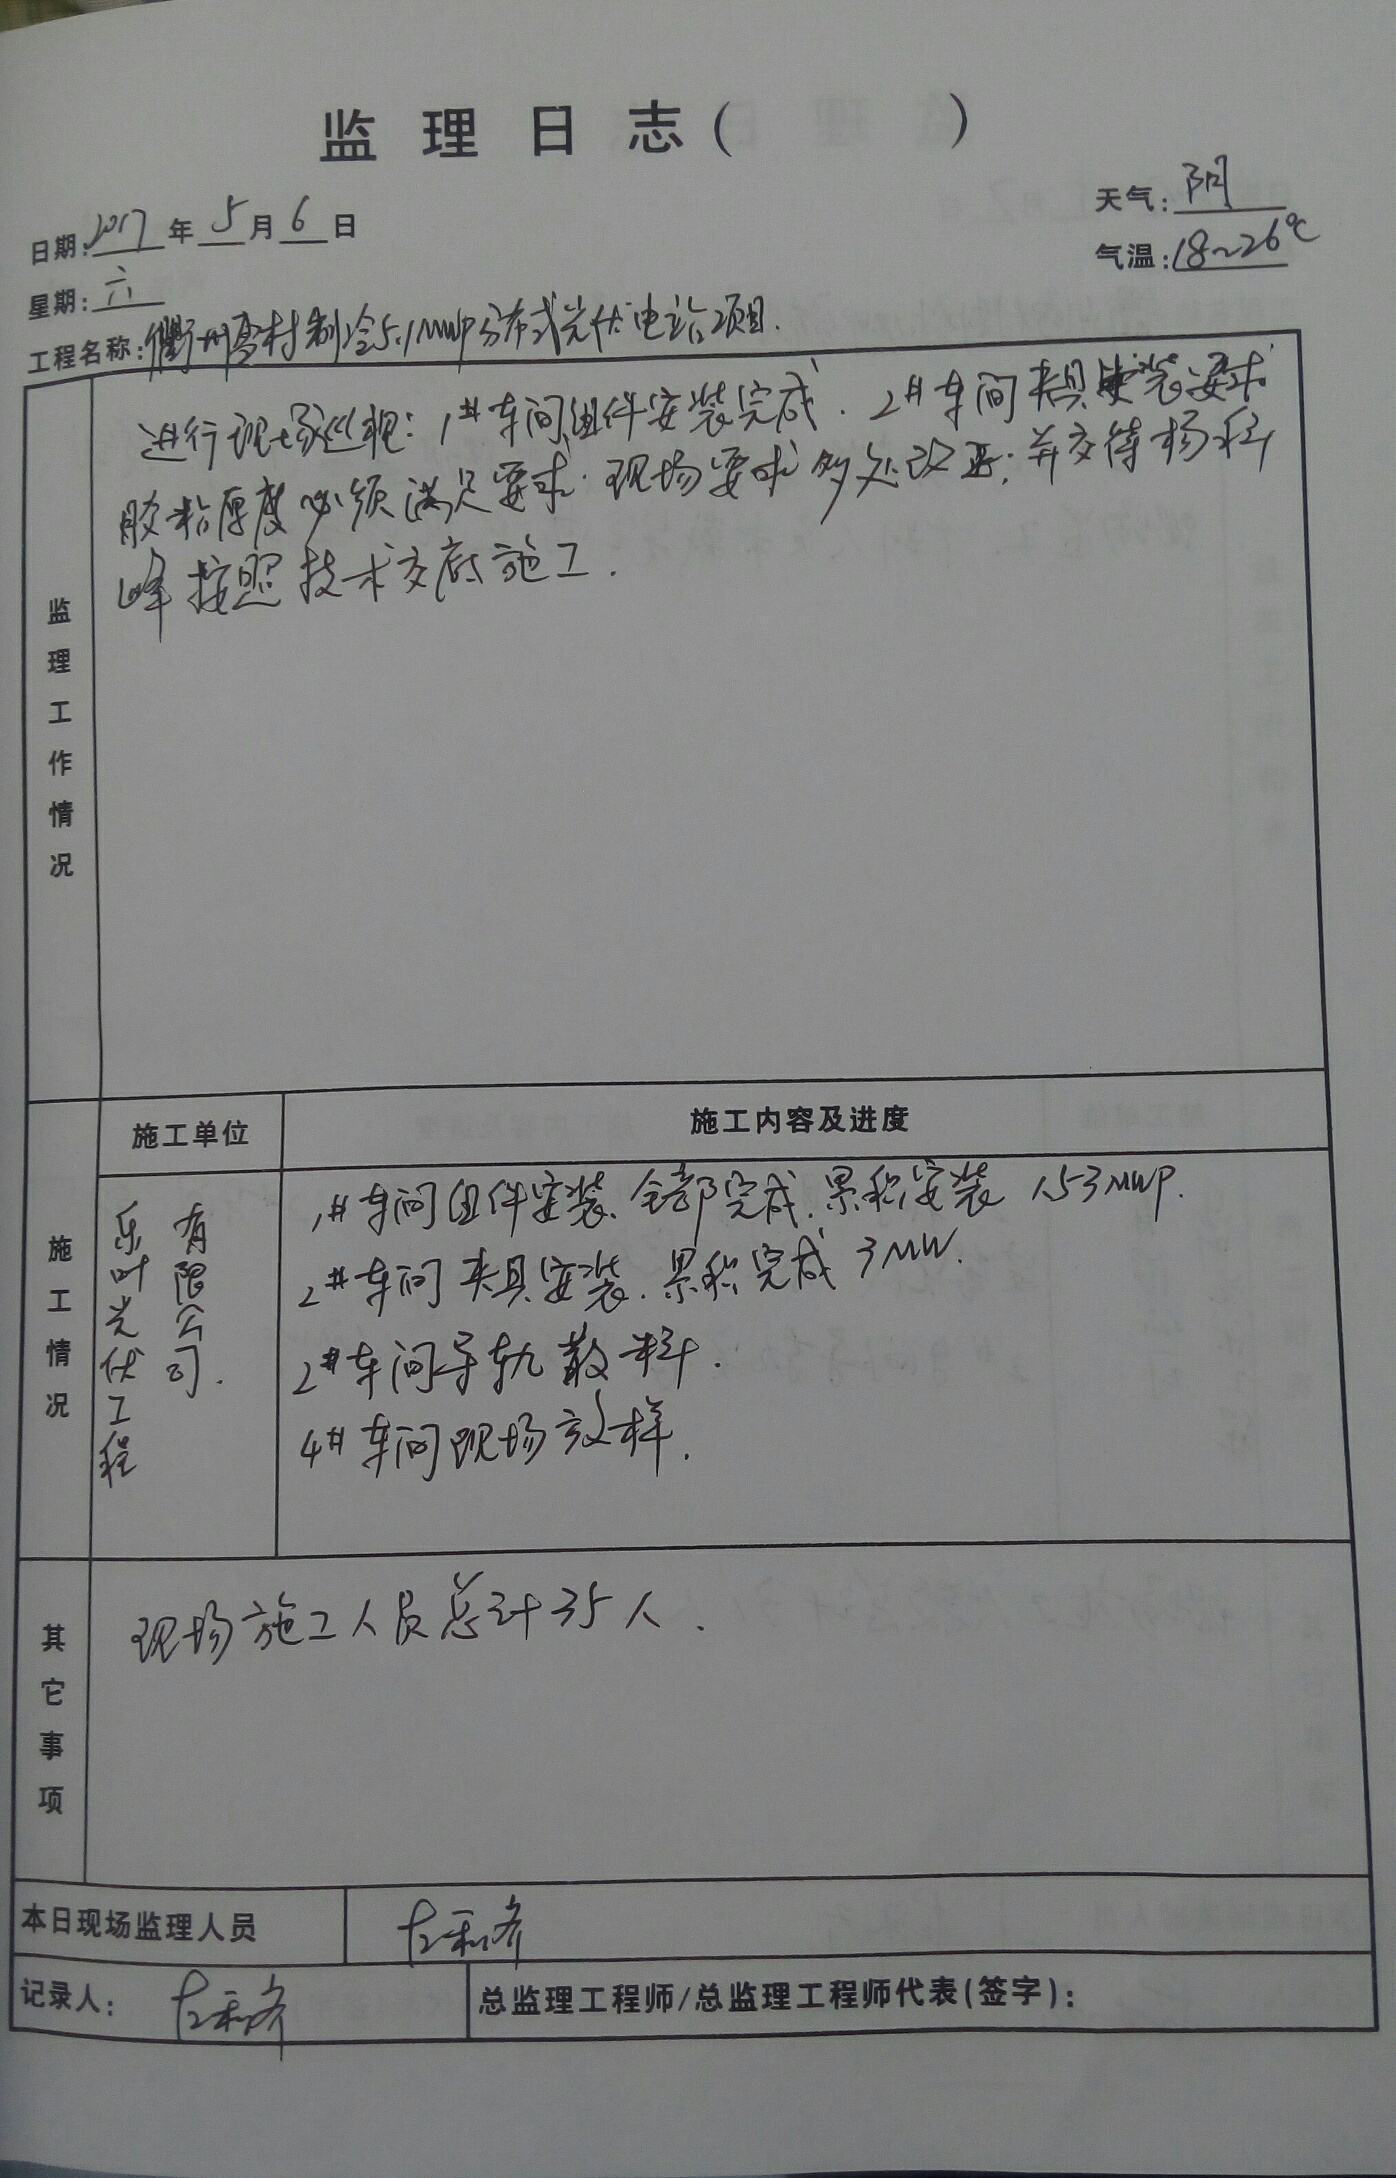 监理日志( )
日期:2017年5月6日
天气:阴
气温:18~26℃
星期:六
工程名称:衢州雪村制冷5.1MWP分布式光伏电站项目.
监理工作情况
进行现场巡视:1#车间组件安装完成.2#车间夹具安装要求
胶粘厚度必须满足要求.现场要求多处改正;并交待杨科
峰按照技术交底施工.
施工情况
施工单位
施工内容及进度
乐叶光伏工程
有限公司.
1#车间组件安装.全部完成.累积安装1.53MWP.
2#车间夹具安装.累积完成3MW.
2#车间导轨散料.
4#车间现场放样.
其它事项
现场施工人员总计35人.
本日现场监理人员
记录人:
总监理工程师/总监理工程师代表(签字):